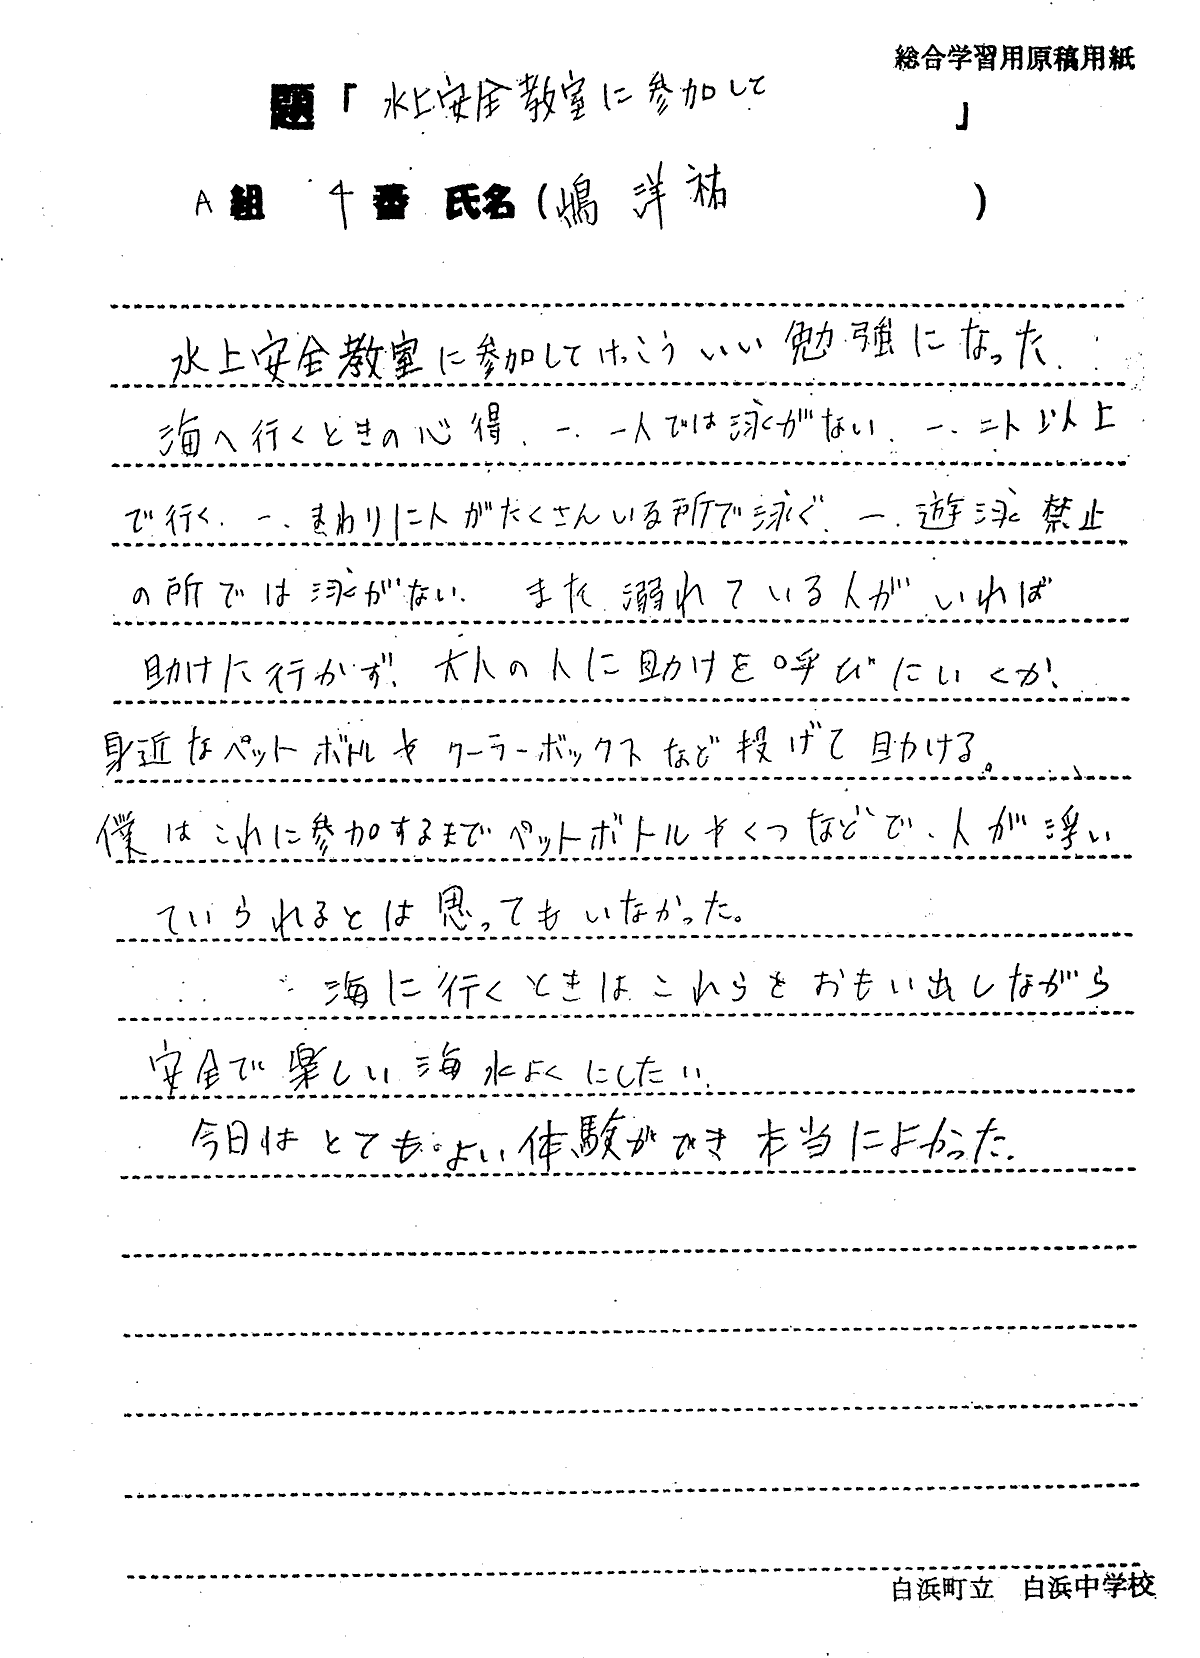 総合学習用原稿用紙
題「水上安全教室に参加して」
A組 4番 氏名(嶋 洋祐)
水上安全教室に参加してけっこういい勉強になった.
海へ行くときの心得、一、一人では泳がない、一、二人以上
で行く、一、まわりに人がたくさんいる所で泳ぐ、一、遊泳禁止
の所では泳がない. また溺れている人がいれば
助けに行かず、大人の人に助けを呼びにいくか、
身近なペットボトルやクーラーボックスなど投げて助ける。
僕はこれに参加するまでペットボトルやくつなどで、人が浮い
ていられるとは思ってもいなかった。
海に行くときはこれらをおもい出しながら
安全で楽しい海水よくにしたい.
今日はとてもよい体験ができ本当によかった.
白浜町立 白浜中学校